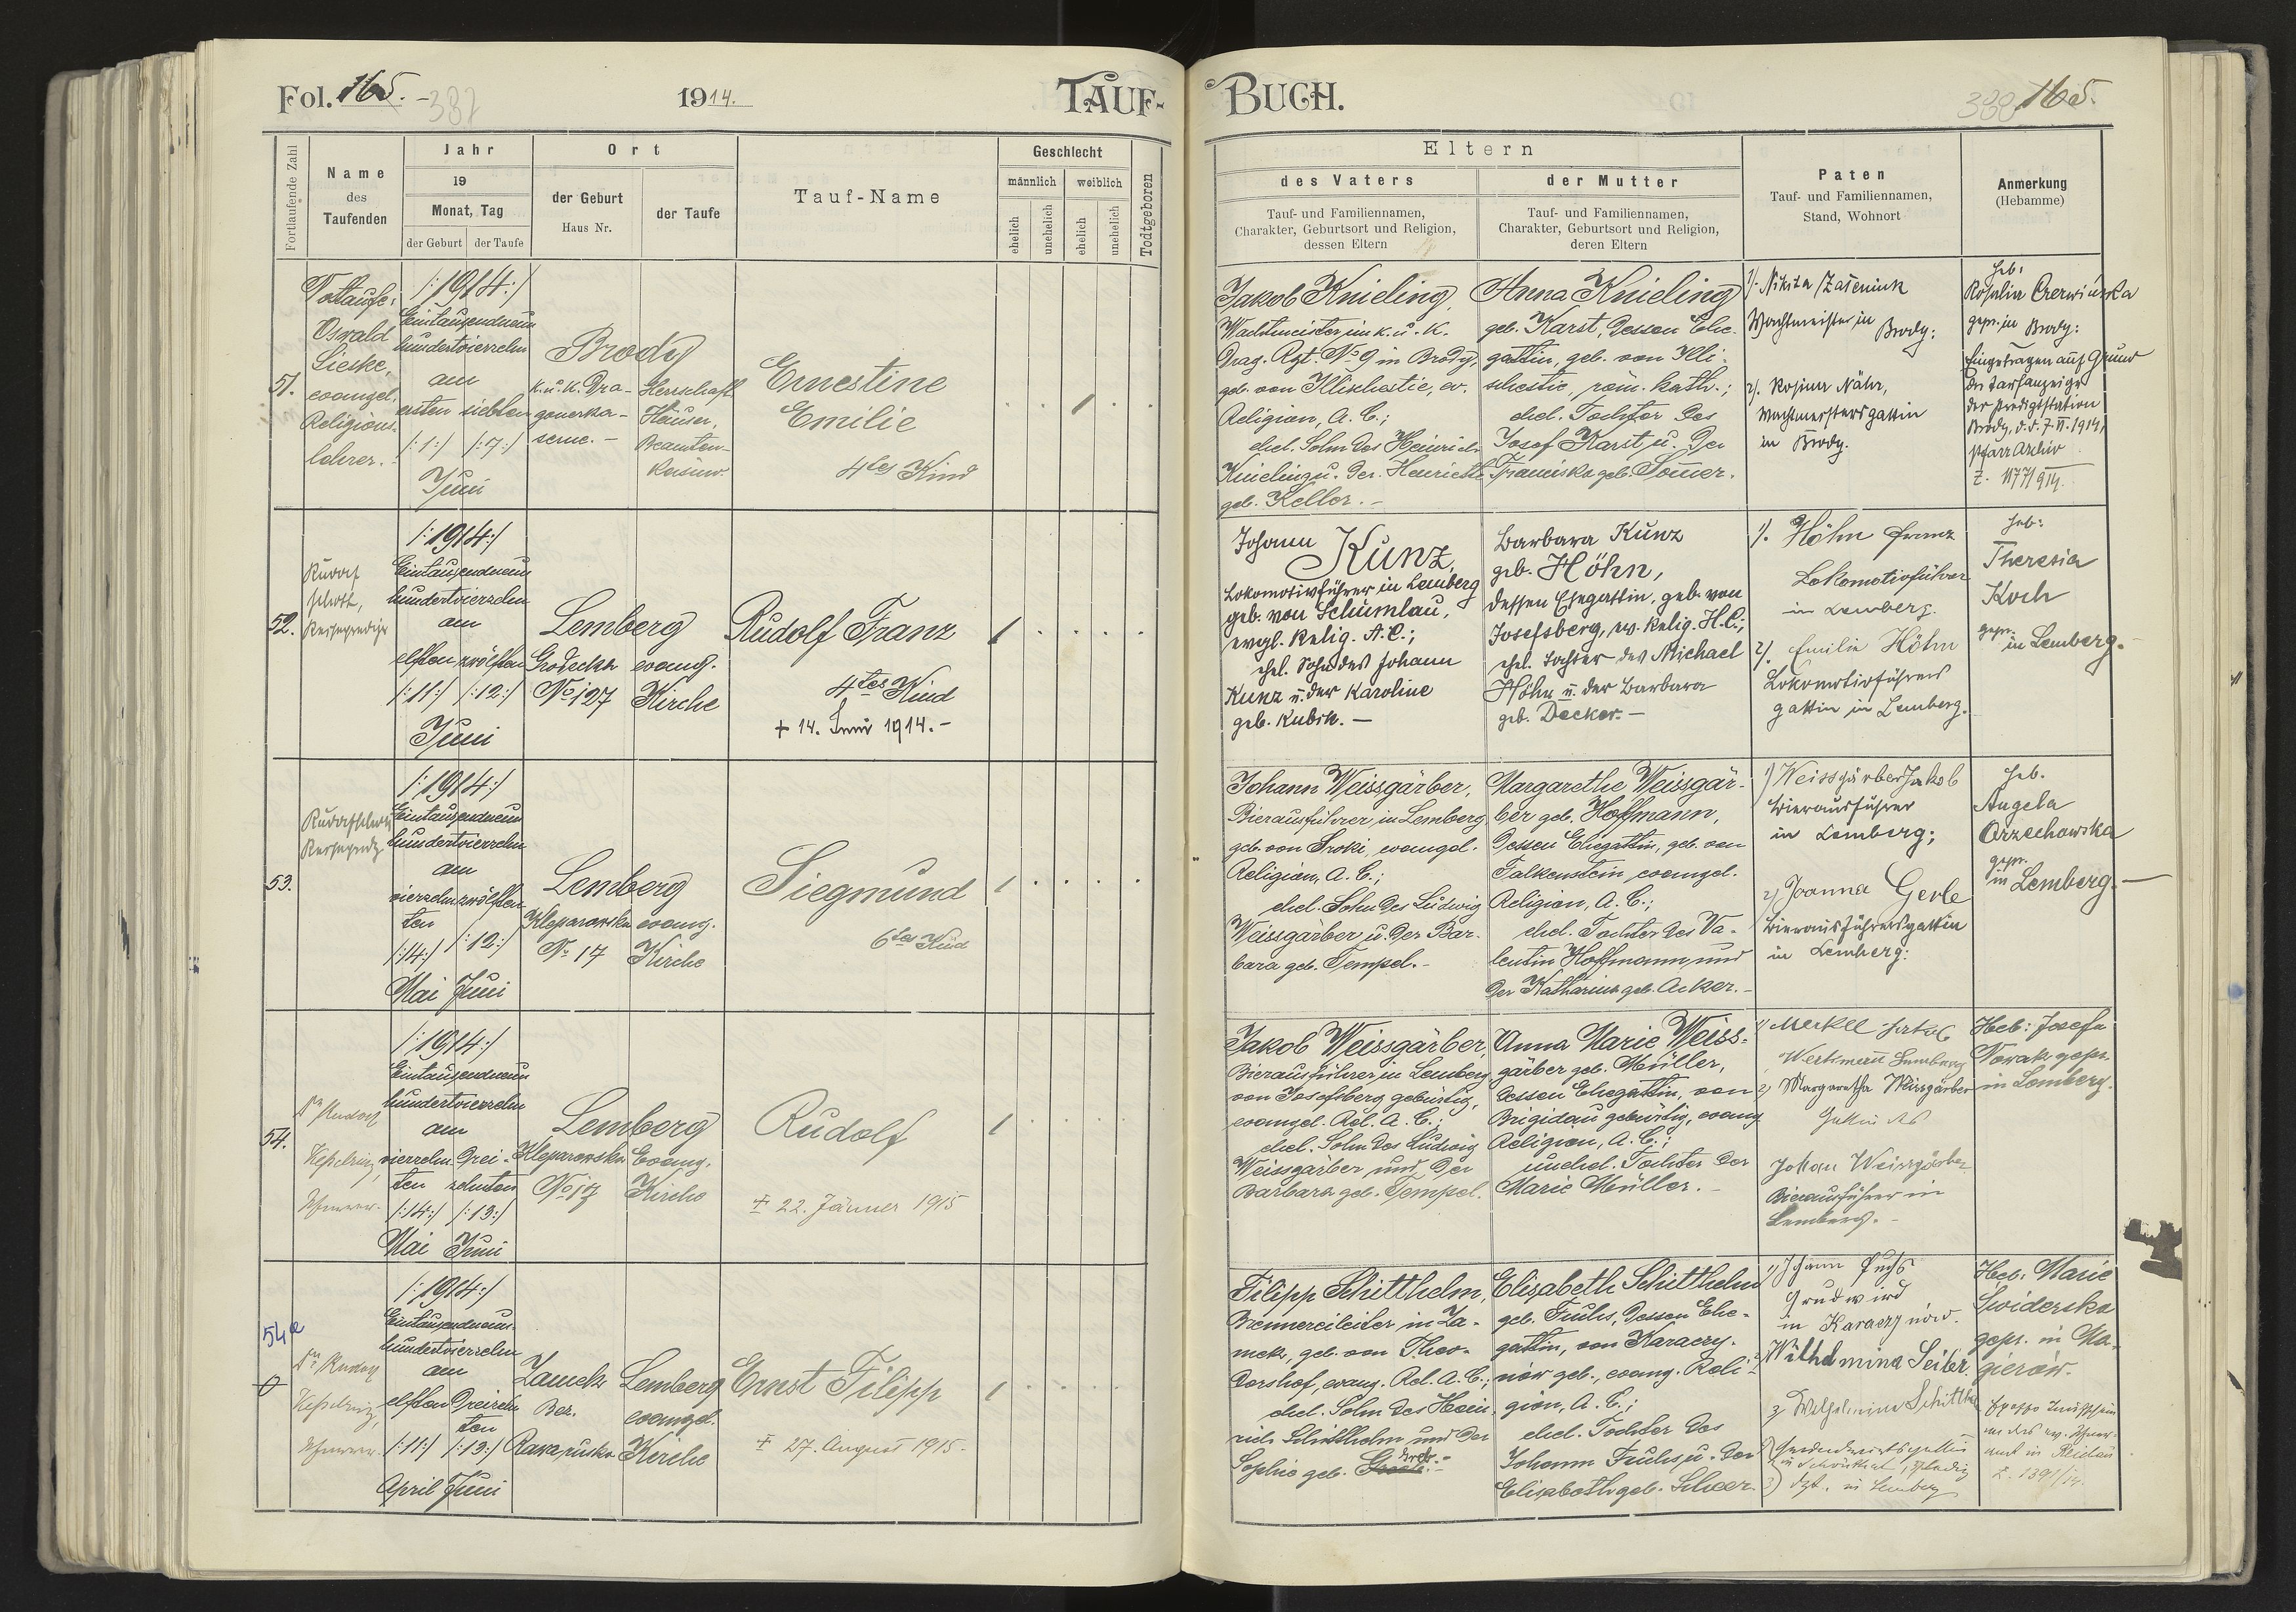 Fol. 165. 387
1914.
TAUF-
BUCH.
388 165.
Fortlaufende Zahl
Name
des
Taufenden
Jahr
19
Monat, Tag
der Geburt
der Taufe
Ort
der Geburt
Haus Nr.
der Taufe
Tauf-Name
Geschlecht
männlich
weiblich
ehelich
unehelich
ehelich
unehelich
Todtgeboren
Eltern
des Vaters
Tauf- und Familiennamen,
Charakter, Geburtsort und Religion,
dessen Eltern
der Mutter
Tauf- und Familiennamen,
Charakter, Geburtsort und Religion,
deren Eltern
Paten
Tauf- und Familiennamen,
Stand, Wohnort
Anmerkung
(Hebamme)
51.
Oswald
Lieske,
evangel.
Religions-
lehrer.
/:1914:/
Eintausendneun
hundertvierzehn
am
ersten siebten
/:1:/ /:7:/
Juni
Brody
k.u.k. Dra-
gonerka-
serne.-
Herrschaft.
Häuser,
Beamten-
Kasino.
Ernestine
Emilie
4tes Kind
1
Jakob Knieling,
Wachtmeister im k. u. k.
Drag. Rgt. No 9 in Brody,
geb. von Illischestie, ev.
Religion, A. C.;
ehel. Sohn des Heinrich
Knieling u. der Henriette
geb. Keller.-
Anna Knieling
geb. Karst, dessen Ehe-
gattin, geb. von Illi-
schestie, röm. kath.;
ehel. Tochter des
Josef Karst u. der
Franziska geb. Somer.
1). Nikita
Wachtmeister in Brody:
2). Rosina Nähr,
Wachtmeistersgattin
in Brody.
Heb:
Rosalia Czerwińska
gepr. in Brody:
Eingetragen auf Grund
der Taufanzeige
der Predigtstation
Brody, d.d. 7.VI.1914,
Pfarrarchiv
52.
Rudolf
/:1914:/
Eintausendneun
hundertvierzehn
am
elften zwölften
/:11:/ /:12:/
Juni
Lemberg
Grodecka
No 127
evang.
Kirche
Rudolf Franz
4tes Kind
+ 14. Juni 1914.-
1
Johann Kunz,
Lokomotivführer in Lemberg
geb. von Schumlau,
evgl. Relig. A.C.;
ehel. Sohn des Johann
Kunz u. der Karoline
geb. Kubik.-
Barbara Kunz
geb. Höhn,
dessen Ehegattin, geb. von
Josefsberg, ev. Relig. H.C.;
ehel. Tochter des Michael
Höhn u. der Barbara
geb. Decker.-
1). Höhn Franz
Lokomotivführer
in Lemberg.
2). Emilie Höhn
Lokomotivführers
gattin in Lemberg.
Heb:
Theresia
Koch
gepr.
in Lemberg.-
53.
/:1914:/
Eintausendneun
hundertvierzehn
am
vierzehn zwölften
ten
/:14:/ /:12:/
Mai Juni
Lemberg
Kleparowska
No 17
evang.
Kirche
Siegmund
6tes Kind
1
Johann Weissgärber,
Bierausführer in Lemberg
geb. von Sroki, evangel.
Religion, A. C.;
ehel. Sohn des Ludwig
Weissgärber u. der Bar-
bara geb. Tempel.-
Margarethe Weissgär-
ber geb. Hoffmann,
dessen Ehegattin, geb. von
Falkenstein evangel.
Religion, A. C.;
ehel. Tochter des Va-
lentin Hoffmann und
der Katharina geb. Acker.-
1) Weissgärber Jakob
Bierausführer
in Lemberg;
2) Joanna Gerle
Bierausführersgattin
in Lemberg:
Heb.
Angela
Orzechowska
gepr.
in Lemberg.-
54.
Dr Rudolf
Kesselring,
Pfarrer.
/:1914:/
Eintausendneun
hundertvierzehn
am
vierzehn drei-
ten zehnten
/:14:/ /:13:/
Mai Juni
Lemberg
Kleparowska
No 17
Evang.
Kirche
Rudolf
+ 22. Jänner 1915
1
Jakob Weissgärber,
Bierausführer in Lemberg
von Josefsberg gebürtig,
evangel. Rel. A. C.;
ehel. Sohn des Ludwig
Weissgärber und der
Barbara geb. Tempel.
Anna Marie Weiss-
gärber geb. Müller,
dessen Ehegattin, von
Brigidau gebürtig, evang.
Religion, A. C.;
unehel. Tochter der
Marie Müller.-
1) Merkel Jakob
Lemberg
2) Margaretha Weissgärber
Gattin des
Johan Weissgärber
Bierausführer in
Lemberg.-
Heb: Josefa
Nowak gepr.
in Lemberg.
54a
Dr Rudolf
Kesselring,
Pfarrer.
/:1914:/
Eintausendneun-
hundertvierzehn
am
elften dreizehn
ten
/:11:/ /:13:/
April Juni
Zameh
Bez.
Rawa ruska
Lemberg
evangel.
Kirche
Ernst Filipp
+ 27. August 1915.
1
Filipp Schitthelm,
Brennereileiter in Za-
mek, geb. von Theo-
dorshof, evang. Rel. A. C.;
ehel. Sohn des Hein-
rich Schitthelm und der
Sophie geb.
Elisabeth Schitthelm
geb. Fuchs, dessen Ehe-
gattin, von Karaczy-
nów geb., evang. Reli-
gion, A. C.;
ehel. Tochter des
Johann Fuchs u. der
Elisabeth geb. Scheer.
1) Johann Fuchs
Grundwirt
in Karaczynów.
2) Wilhelmina Seiler.
3) Wilhelmine Schitthelm
in Lemberg
Heb: Marie
Swiderska
gepr. in Ma-
gierów.